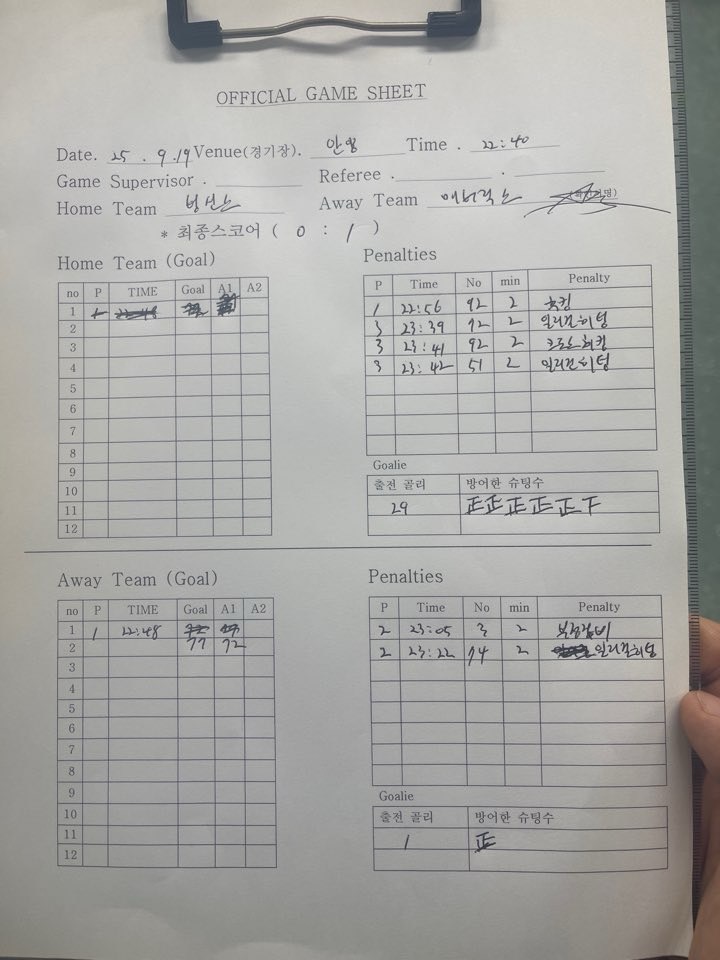 OFFICIAL GAME SHEET
Date. 25 . 9 .19 Venue(경기장). 안양 Time . 22:40
Game Supervisor . Referee . .
Home Team Away Team
* 최종스코어 ( 0 : 1 )
Home Team (Goal)
no P TIME Goal A1 A2
1
2
3
4
5
6
7
8
9
10
11
12
Penalties
P Time No min Penalty
1 22:56 92 2 훅킹
3 23:39 72 2 일리걸히팅
3 23:41 92 2
3 23:42 51 2 일리걸히팅
Goalie
출전 골리 방어한 슈팅수
29 正正正正正下
Away Team (Goal)
no P TIME Goal A1 A2
1 1 22:48
2 77 72
3
4
5
6
7
8
9
10
11
12
Penalties
P Time No min Penalty
2 23:05 3 2
2 23:22 74 2 일리걸히팅
Goalie
출전 골리 방어한 슈팅수
1 正